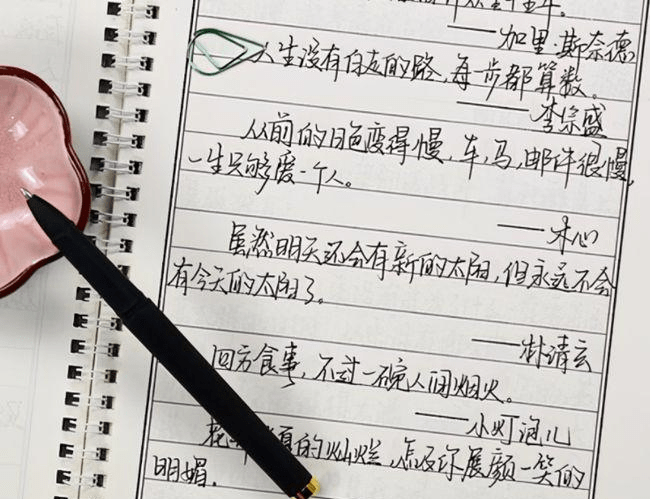 ——加里·斯奈德
人生没有白走的路,每一步都算数。
——李宗盛
从前的日色变得慢,车,马,邮件很慢,
一生只够爱一个人。
——木心
虽然明天还会有新的太阳,但永远不会
有今天的太阳了。
——林清玄
四方食事,不过一碗人间烟火。
——小灯泡儿
的灿烂,怎及你展颜一笑的
明媚.